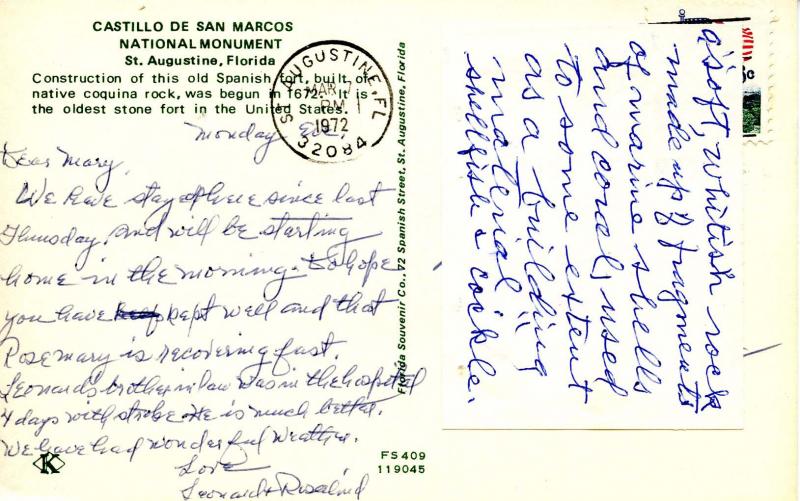 CASTILLO DE SAN MARCOS
NATIONAL MONUMENT
St. Augustine, Florida
Construction of this old Spanish fort, built of
native coquina rock, was begun in 1672. It is
the oldest stone fort in the United States.
ST. AUGUSTINE, FL
MAR 7
PM
1972
32084
Monday Eve,
Dear Mary,
We have stayed here since last
Thursday, and will be starting
home in the morning. Do hope
you have kept well and that
Rosemary is recovering fast.
Leonard's brother in law was in the hospital
4 days with stroke. He is much better.
We have had wonderful weather.
Love
Leonard & Rosalind
K
FS409
119045
Florida Souvenir Co., 72 Spanish Street, St. Augustine, Florida
a "soft, whitish rock
made up of fragments
of marine shells
and coral, used
to some extent
as a building
material"
shellfish & cockle.